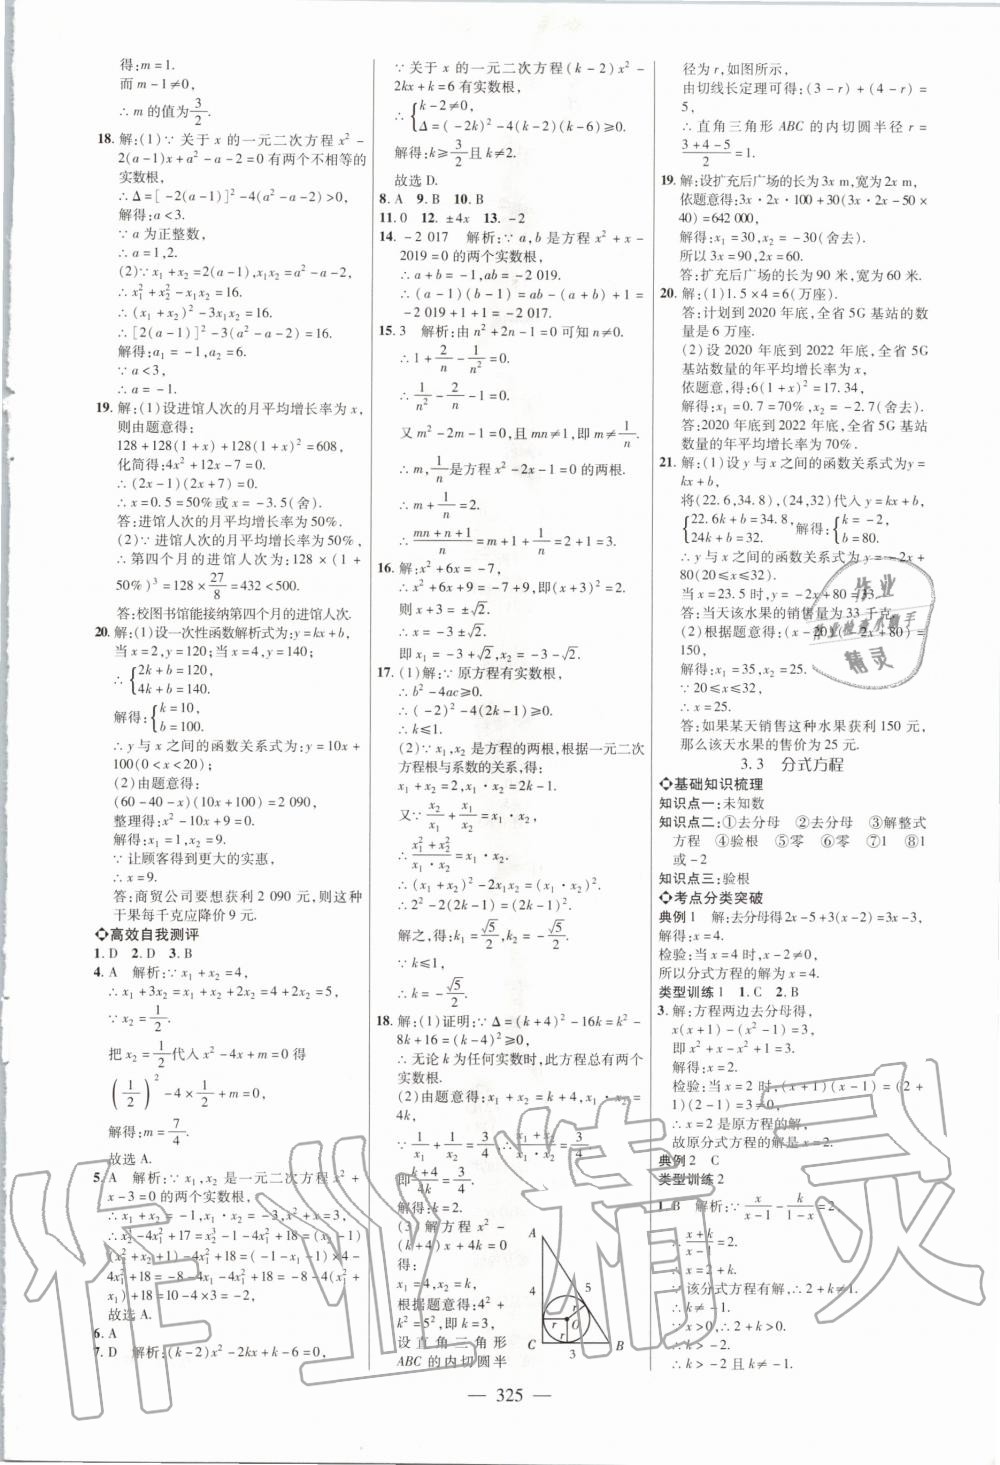 得:m=1.
而 m-1≠0,
∴ m 的值为3/2.
18. 解:(1)∵ 关于 x 的一元二次方程 x²-
2(a-1)x+a²-a-2=0 有两个不相等的
实数根,
∴ Δ=[-2(a-1)]²-4(a²-a-2)>0,
解得:a<3.
∵ a 为正整数,
∴ a=1,2.
(2)∵ x₁+x₂=2(a-1),x₁x₂=a²-a-2,
∴ x₁²+x₂²-x₁x₂=16.
∴ (x₁+x₂)²-3x₁x₂=16.
∴ [2(a-1)]²-3(a²-a-2)=16.
解得:a₁=-1,a₂=6.
∵ a<3,
∴ a=-1.
19. 解:(1)设进馆人次的月平均增长率为 x,
则由题意得:
128+128(1+x)+128(1+x)²=608,
化简得:4x²+12x-7=0.
∴ (2x-1)(2x+7)=0.
∴ x=0.5=50%或 x=-3.5(舍).
答:进馆人次的月平均增长率为 50%.
(2)∵ 进馆人次的月平均增长率为 50%,
∴ 第四个月的进馆人次为:128×(1+
50%)³=128×27/8=432<500.
答:校图书馆能接纳第四个月的进馆人次.
20. 解:(1)设一次性函数解析式为:y=kx+b,
当 x=2,y=120;当 x=4,y=140;
∴ {2k+b=120,
4k+b=140.
解得:{k=10,
b=100.
∴ y 与 x 之间的函数关系式为:y=10x+
100(0<x<20);
(2)由题意得:
(60-40-x)(10x+100)=2 090,
整理得:x²-10x+9=0.
解得:x₁=1,x₂=9.
∵ 让顾客得到更大的实惠,
∴ x=9.
答:商贸公司要想获利 2 090 元,则这种
干果每千克应降价 9 元.
高效自我测评
1. D 2. D 3. B
4. A 解析:∵ x₁+x₂=4,
∴ x₁+3x₂=x₁+x₂+2x₂=4+2x₂=5,
∴ x₂=1/2.
把 x₂=1/2代入 x²-4x+m=0 得
(1/2)²-4×1/2+m=0,
解得:m=7/4.
故选 A.
5. A 解析:∵ x₁,x₂ 是一元二次方程 x²+
x-3=0 的两个实数根,
∴ x₁+x₂=-1,x₁·x₂=-3,x₁²+x₁=3,
∴ x₂³-4x₁²+17=x₂³-1-4x₁²+18=(x₂-1)
(x₂²+x₂+1)-4x₁²+18=(-1-x₁-1)×4-
4x₁²+18=-8-4x₁-4x₁²+18=-8-4(x₁²+
x₁)+18=10-4×3=-2,
故选 A.
6. A
7. D 解析:(k-2)x²-2kx+k-6=0,
∵ 关于 x 的一元二次方程(k-2)x²-
2kx+k=6 有实数根,
∴ {k-2≠0,
Δ=(-2k)²-4(k-2)(k-6)≥0.
解得:k≥3/2且 k≠2.
故选 D.
8. A 9. B 10. B
11. 0 12. ±4x 13. -2
14. -2 017 解析:∵ a,b 是方程 x²+x-
2019=0 的两个实数根,
∴ a+b=-1,ab=-2 019.
∴ (a-1)(b-1)=ab-(a+b)+1=
-2 019+1+1=-2 017.
15. 3 解析:由 n²+2n-1=0 可知 n≠0.
∴ 1+2/n-1/n²=0.
∴ 1/n²-2/n-1=0.
又 m²-2m-1=0,且 mn≠1,即 m≠1/n.
∴ m,1/n是方程 x²-2x-1=0 的两根.
∴ m+1/n=2.
∴ (mn+n+1)/n=m+1+1/n=2+1=3.
16. 解:x²+6x=-7,
∴ x²+6x+9=-7+9,即(x+3)²=2.
则 x+3=±√2.
∴ x=-3±√2.
即 x₁=-3+√2,x₂=-3-√2.
17. (1)解:∵ 原方程有实数根,
∴ b²-4ac≥0.
∴ (-2)²-4(2k-1)≥0.
∴ k≤1.
(2)∵ x₁,x₂ 是方程的两根,根据一元二次
方程根与系数的关系,得:
x₁+x₂=2,x₁·x₂=2k-1.
又∵ x₂/x₁+x₁/x₂=x₁·x₂,
∴ (x₁²+x₂²)/(x₁·x₂)=x₁·x₂.
∴ (x₁+x₂)²-2x₁x₂=(x₁·x₂)².
∴ 2²-2(2k-1)=(2k-1)².
解之,得:k₁=√5/2,k₂=-√5/2.
∵ k≤1,
∴ k=-√5/2.
18. 解:(1)证明:∵ Δ=(k+4)²-16k=k²-
8k+16=(k-4)²≥0,
∴ 无论 k 为任何实数时,此方程总有两个
实数根.
(2)由题意得:x₁+x₂=k+4,x₁·x₂=
4k,
∵ 1/x₁+1/x₂=3/4,∴ (x₁+x₂)/(x₁·x₂)=3/4.
即(k+4)/4k=3/4.
解得:k=2.
(3) 解方程 x²-
(k+4)x+4k=0 得:
x₁=4,x₂=k,
根据题意得:4²+
k²=5²,即 k=3,
设直角三角形
ABC 的内切圆半
A
4
5
r
r
r
O
C
3
B
径为 r,如图所示,
由切线长定理可得:(3-r)+(4-r)=
5,
∴ 直角三角形 ABC 的内切圆半径 r=
(3+4-5)/2=1.
19. 解:设扩充后广场的长为 3x m,宽为 2x m,
依题意得:3x·2x·100+30(3x·2x-50×
40)=642 000,
解得:x₁=30,x₂=-30(舍去).
所以 3x=90,2x=60.
答:扩充后广场的长为 90 米,宽为 60 米.
20. 解:(1)1.5×4=6(万座).
答:计划到 2020 年底,全省 5G 基站的数
量是 6 万座.
(2)设 2020 年底到 2022 年底,全省 5G
基站数量的年平均增长率为 x,
依题意,得:6(1+x)²=17.34,
解得:x₁=0.7=70%,x₂=-2.7(舍去).
答:2020 年底到 2022 年底,全省 5G 基站
数量的年平均增长率为 70%.
21. 解:(1)设 y 与 x 之间的函数关系式为y=
kx+b,
将(22.6,34.8),(24,32)代入 y=kx+b,
{22.6k+b=34.8,
24k+b=32. 解得:{k=-2,
b=80.
∴ y 与 x 之间的函数关系式为 y=-2x+
80(20≤x≤32).
当 x=23.5 时,y=-2x+80=33.
答:当天该水果的销售量为 33 千克.
(2)根据题意得:(x-20)(-2x+80)=
150,
解得:x₁=35,x₂=25.
∵ 20≤x≤32,
∴ x=25.
答:如果某天销售这种水果获利 150 元,
那么该天水果的售价为 25 元.
3.3 分式方程
基础知识梳理
知识点一:未知数
知识点二:①去分母 ②去分母 ③解整式
方程 ④验根 ⑤零 ⑥零 ⑦1 ⑧1
或-2
知识点三:验根
考点分类突破
典例 1 解:去分母得 2x-5+3(x-2)=3x-3,
解得:x=4.
检验:当 x=4 时,x-2≠0,
所以分式方程的解为 x=4.
类型训练 1 1. C 2. B
3. 解:方程两边去分母得,
x(x+1)-(x²-1)=3,
即 x²+x-x²+1=3,
解得:x=2.
检验:当 x=2 时,(x+1)(x-1)=(2+
1)(2-1)=3≠0,
∴ x=2 是原方程的解,
故原分式方程的解是 x=2.
典例 2 C
类型训练 2
1. B 解析:∵ x/(x-1)-k/(1-x)=2,
∴ (x+k)/(x-1)=2.
∴ x=2+k.
∵ 该分式方程有解,∴ 2+k≠1.
∴ k≠-1.
∵ x>0,∴ 2+k>0,
∴ k>-2.
∴ k>-2 且 k≠-1.
— 325 —
作业精灵
作业
精灵